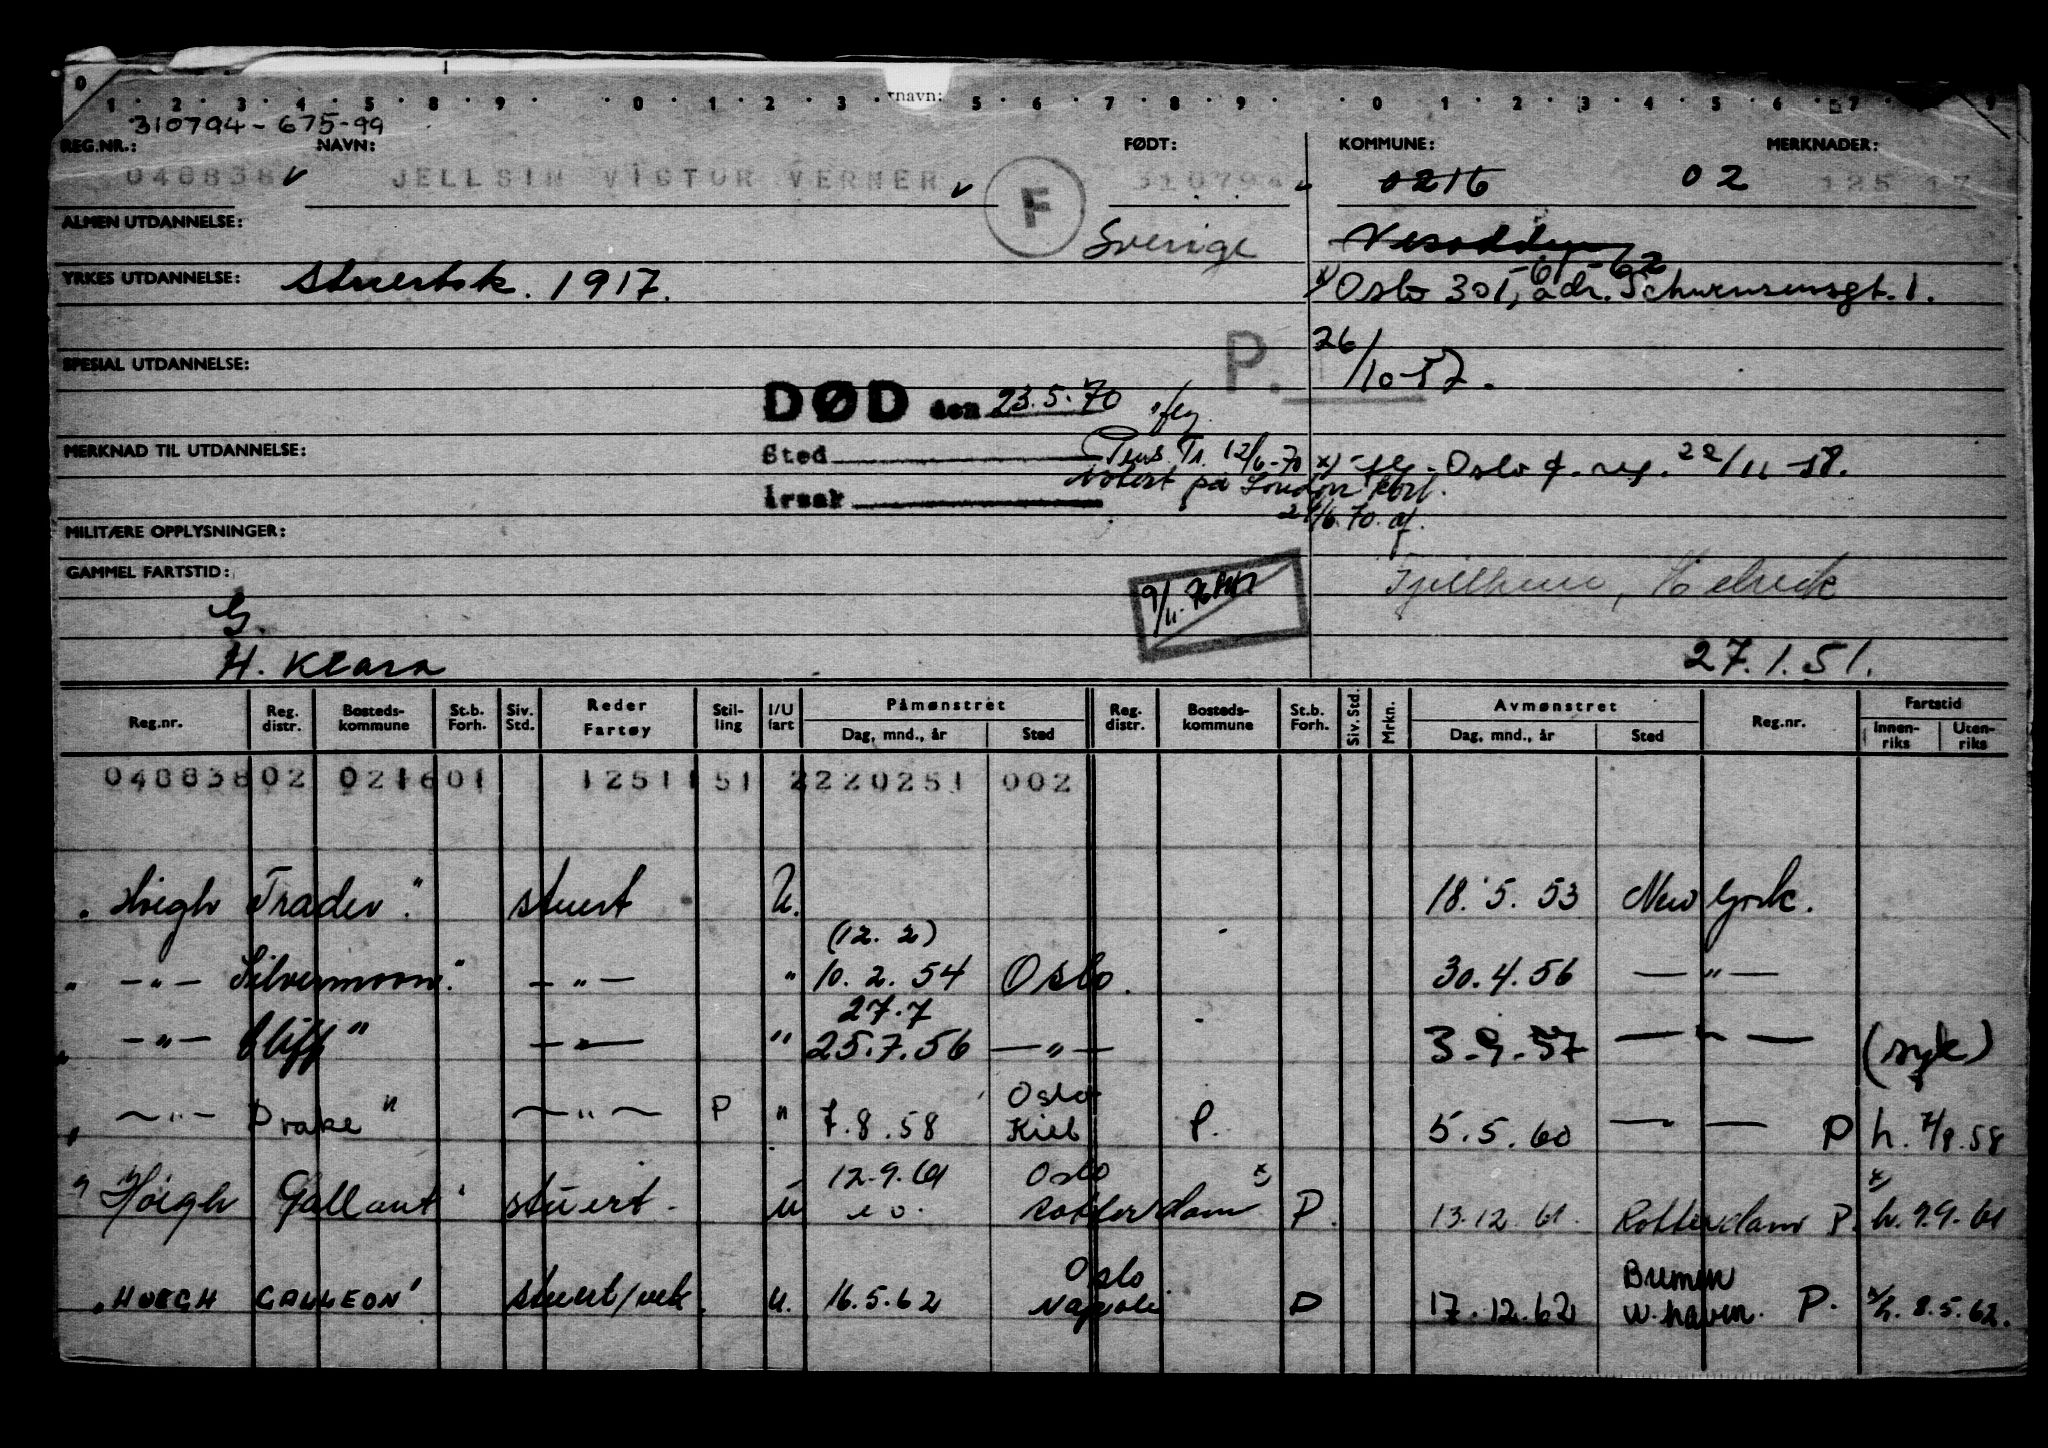 0
1 · 2 · 3 · 4 · 5 · 8 · 9 · · 0 · 1 · 2 · 3 · 5 · 6 · 7 · 8 · 9 · · 0 · 1 · 2 · 3 · 4 · 5 · 6 · 7 · 9
rnavn:
310794-675-99
REG.NR.: NAVN: FØDT: KOMMUNE: MERKNADER:
048838 JELLSIN VICTOR VERNER F 310794 0216 02 125 17
ALMEN UTDANNELSE: Sverige Nesodden
YRKES UTDANNELSE: Stuertsk. 1917. x) Oslo 301, -61-62 adr. Schwensensgt. 1.
P. 26/10-57.
SPESIAL UTDANNELSE:
DØD den 23.5.70
Sted Pens. Tr. 12/6-70
MERKNAD TIL UTDANNELSE: x) Oslo f. reg. 22/11-58.
Årsak Notert på London kort.
24/6.70.
MILITÆRE OPPLYSNINGER:
GAMMEL FARTSTID:
9/11.76
G.
H. Klara 27.1.51.
Reg.nr. Reg. distr. Bosteds-kommune St.b. Forh. Siv. Std. Reder Fartøy Stil-ling I/U fart Påmønstret Dag, mnd., år Sted Reg. distr. Bosteds-kommune St.b. Forh. Siv. Std. Mrkn. Avmønstret Dag, mnd., år Sted Reg.nr. Fartstid Innen-riks Uten-riks
048838 02 0216 01 1251151 2220251 002
"Høegh Trader" stuert U. 18.5.53 New York.
(12.2)
" —"— Silvermoon" —"— " 10.2.54 Oslo. 30.4.56 —"—
27.7
" —"— Cliff" —"— " 25.7.56 —"— 3.9.57 —"— (syk)
Oslo
" —"— Drake" —"— P " 7.8.58 Kiel P. 5.5.60 —"— P h. 7/8.58
12.9.61 Oslo x x
"Høegh Gallant" stuert. U Rotterdam P. 13.12.61. Rotterdam P. h. 9.9.61
Oslo Bremen
"HOEGH GALLEON" stuert/vek. U. 16.5.62 Napoli P 17.12.62 W.haven. P. x/h. 8.5.62.